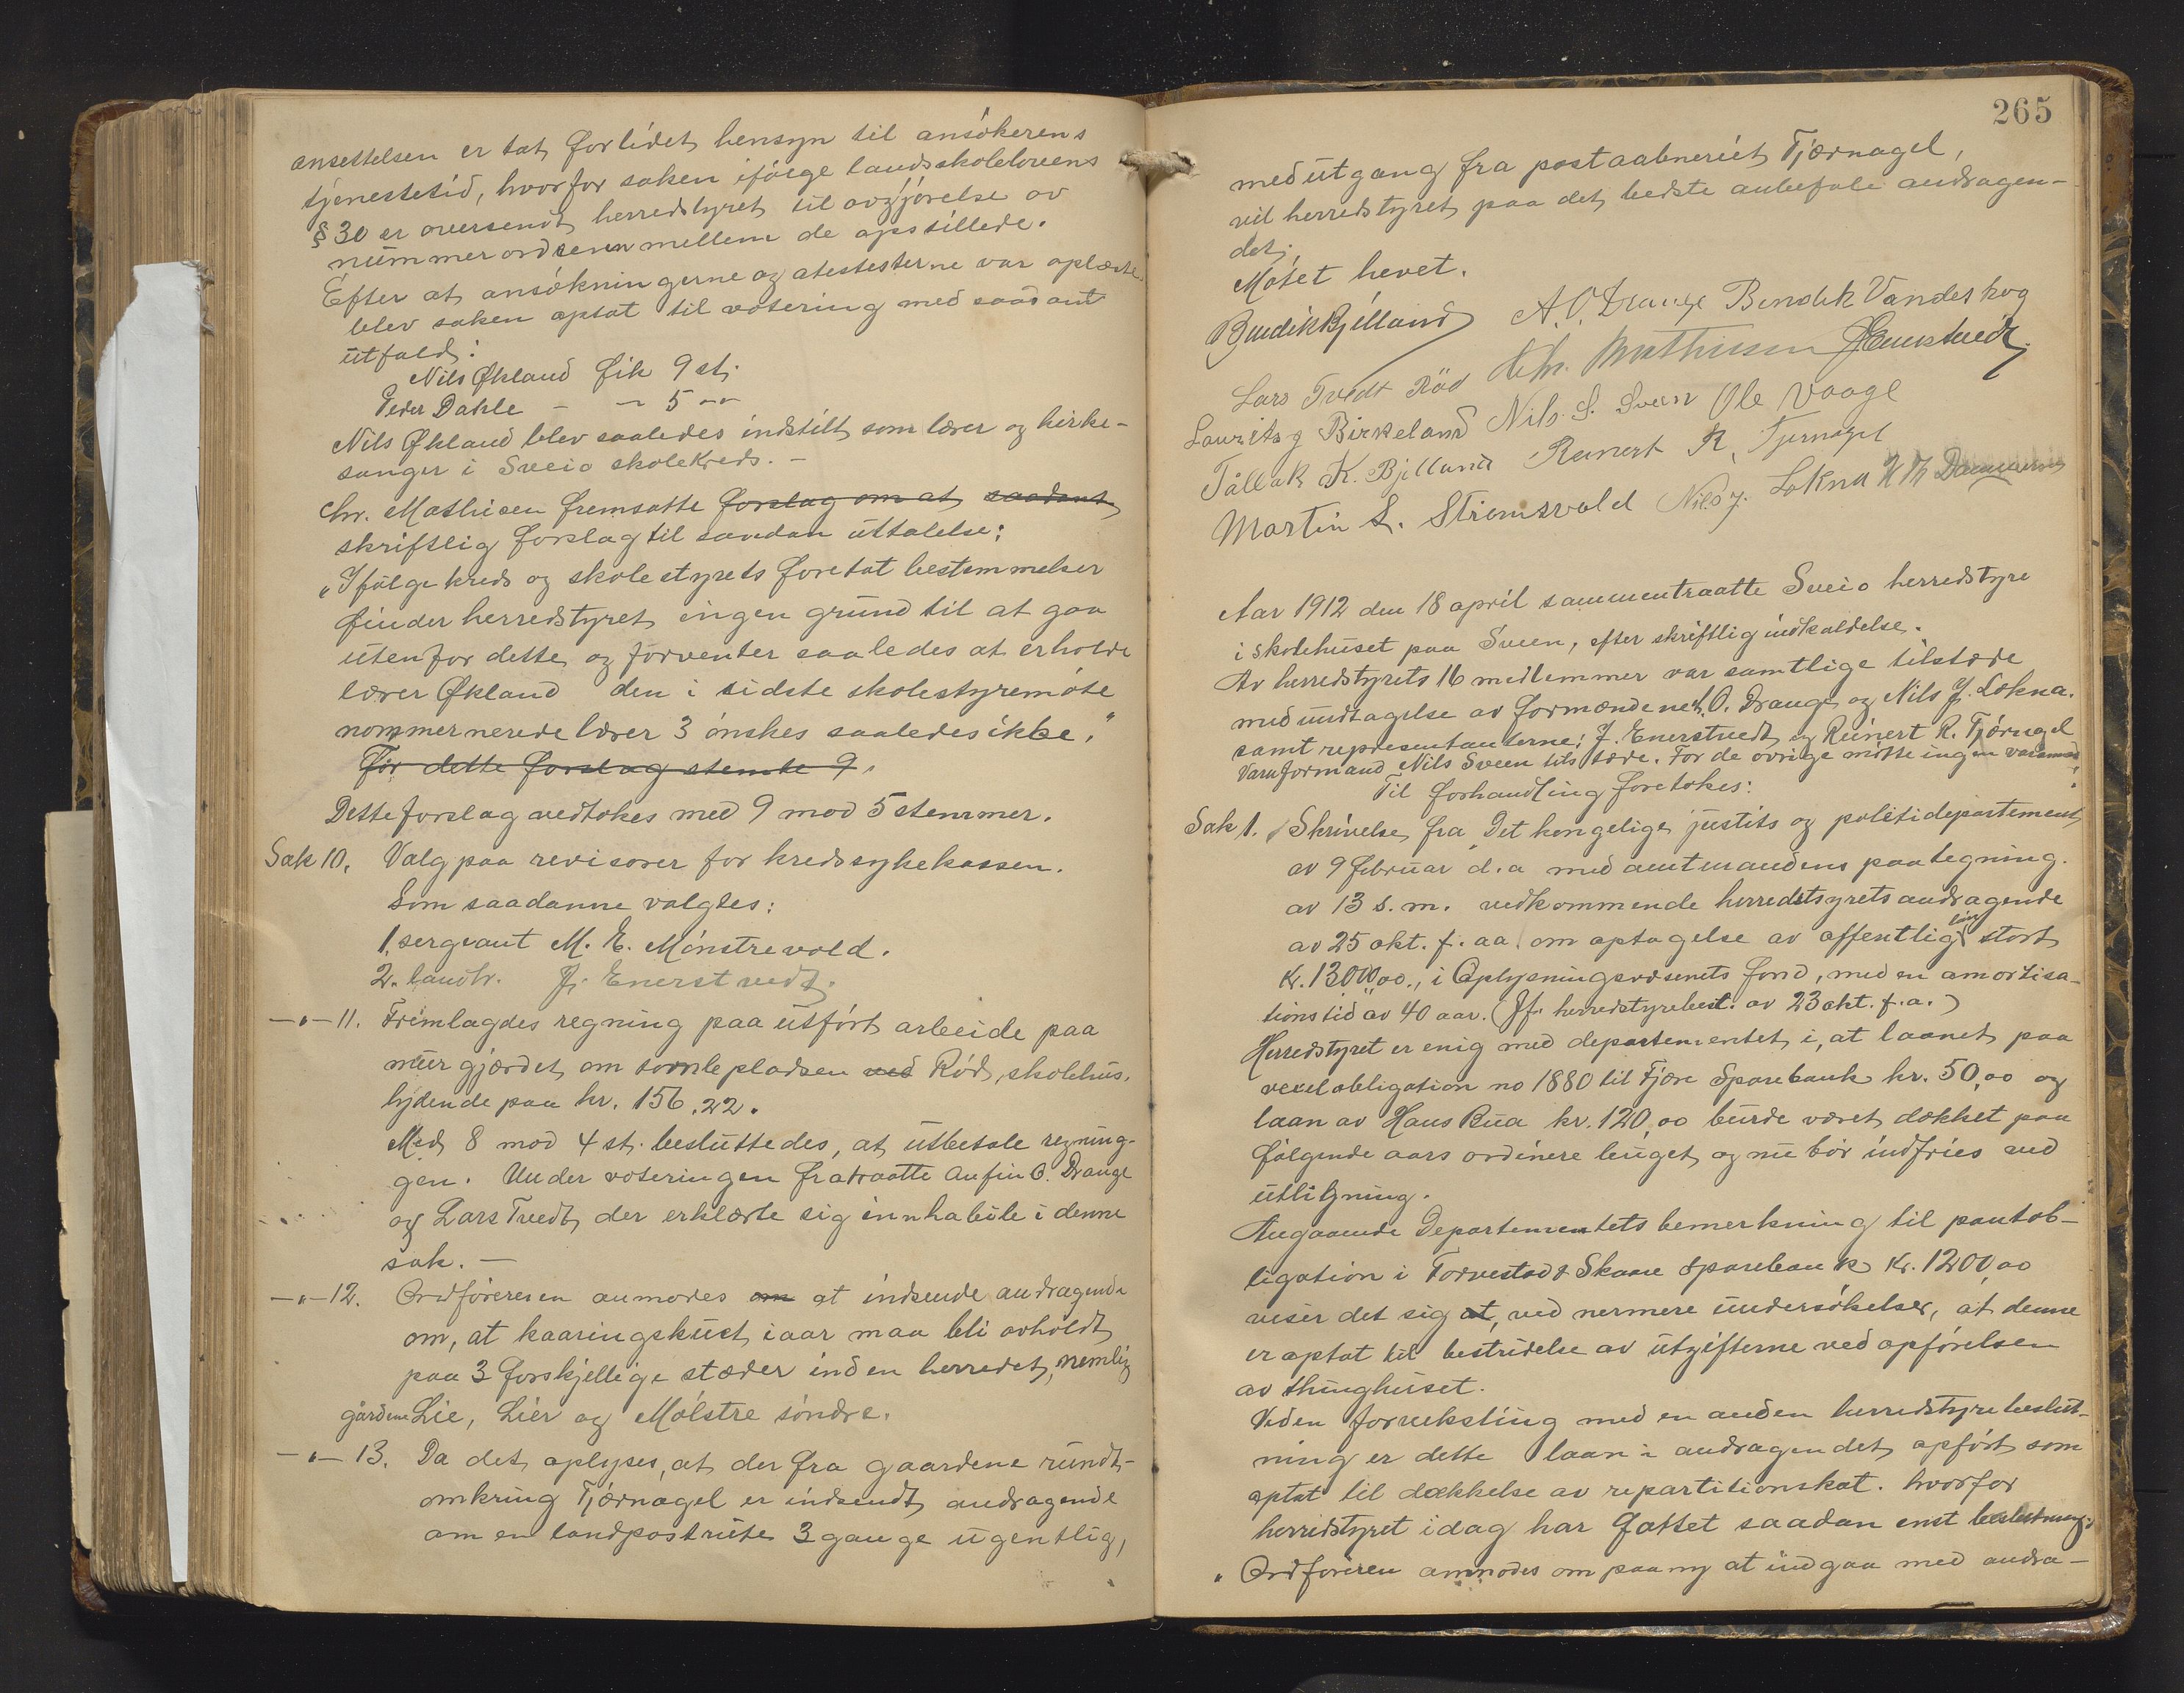 ansettelsen er tat forlidet hensyn til ansökerens
tjenestetid, hvorfor saken ifölge landsskoleloven
§ 30 er oversendt herredstyret til avgjörelse av
nummerordrenen mellem de opstillede.
Efter at ansökningerne og atestesterne var oplæste
blev saken optat til votering med saadant
utfald:
Nils Økland fik 9 st.
Peder Dahle - - 5 --
Nils Økland blev saaledes indstilt som lærer og kirke-
sanger i Sveio skolekreds. -
Chr. Mathisen fremsatte forslag om at saadant
skriftlig forslag til saadan uttalelse:
"Ifölge kreds og skolestyrets foretat bestemmelser
finder herredstyret ingen grund til at gaa
utenfor dette og forventer saaledes at erholde
lærer Økland den i sidste skolestyremöte
nommernerede lærer 3 önskes saaledes ikke."
For dette forslag stemte 9.
Dette forslag vedtokes med 9 mod 5 stemmer.
Sak 10. Valg paa revisorer for kredssykekassen.
Som saadanne valgtes:
1. sergeant M. E. Mönstrevold.
2. landh. J. Enerstvedt.
-"- 11. Fremlagdes regning paa utfört arbeide paa
muurgjærdet om samlepladsen ved Röd skolehus,
lydende paa kr. 156.22.
Med 8 mod 4 st. besluttedes, at utbetale regnin-
gen. Under voteringen fratraatte Anfin O. Drange
og Lars Tvedt, der erklærte sig innhabile i denne
sak. -
-"- 12. Ordföreresen anmodes om at indsende andragende
om, at kaaringskuet iaar maa bli avholdt
paa 3 forskjellige stæder inden herredet, nemlig
gårdene Lie, Lier og Mölstre söndre.
-"- 13. Da det oplyses, at der fra gaardene rundt-
omkring Tjærnagel er indsendt andragende
om en landpostrute 3 gange ugentlig,
265
med utgang fra postaabneriet Tjærnagel,
vil herredstyret paa det bedste anbefale andragen-
det.
Mötet hevet.
Bendik Bjelland A. O. Drange Bendik Vandeskog
Lars Tvedt Röd Chr. Mathisen J Enerstvedt
Laurits J Birkeland Nils S. Sveen Ole Vaage
Tållak K. Bjelland Reinert R. Tjernagel
Martin S. Strömsvold Nils J. Lokna
Aar 1912 den 18 april sammentraatte Sveio herredstyre
i skolehuset paa Sveen, efter skriftlig indkaldelse.
Av herredstyrets 16 medlemmer var samtlige tilstæde
med undtagelse av formændene A. O. Drange og Nils J. Lokna.
samt representanterne: J. Enerstvedt og Reinert R. Tjærnagel
Varaformand Nils Sveen tilstæde. For de övrige mötte ingen varamænd.
Til forhandling foretokes:
Sak 1. Skrivelse fra Det kongelige justits og politidepartement
av 9 februar d.a med amtmandens paategning.
av 13 s.m. vedkommende herredstyrets andragende
av 25 okt. f. aa. om optagelse av offentlig lån stort
kr. 13000,00., i Oplysningsvæsenets fond, med en amortisa-
tionstid av 40 aar. (Jf. herredstyrebesl. av 23 okt. f.a.)
Herredstyret er enig med departementet i, at laanet paa
vexelobligation no 1880 til Fjære Sparebank kr. 50,00 og
laan av Hans Bua kr. 120,00 burde været dækket paa
fölgende aars ordinere buget og nu bör indfries ved
utligning.
Angaaende Departementets bemerkning til pantob-
ligation i Torvestad & Skaare Sparebank kr. 1200,00
viser det sig at, ved nermere undersökelser, at denne
er optat til bestridelse av utgifterne ved opförelsen
av thinghuset.
Ved en forveksling med en anden herredstyrebeslut-
ning er dette laan i andragendet opfört som
optat til dækkelse av repartitionskat. hvorfor
herredstyret idag har fattet saadan enst beslutning:
" Ordföreren anmodes om paany at indgaa med andra-